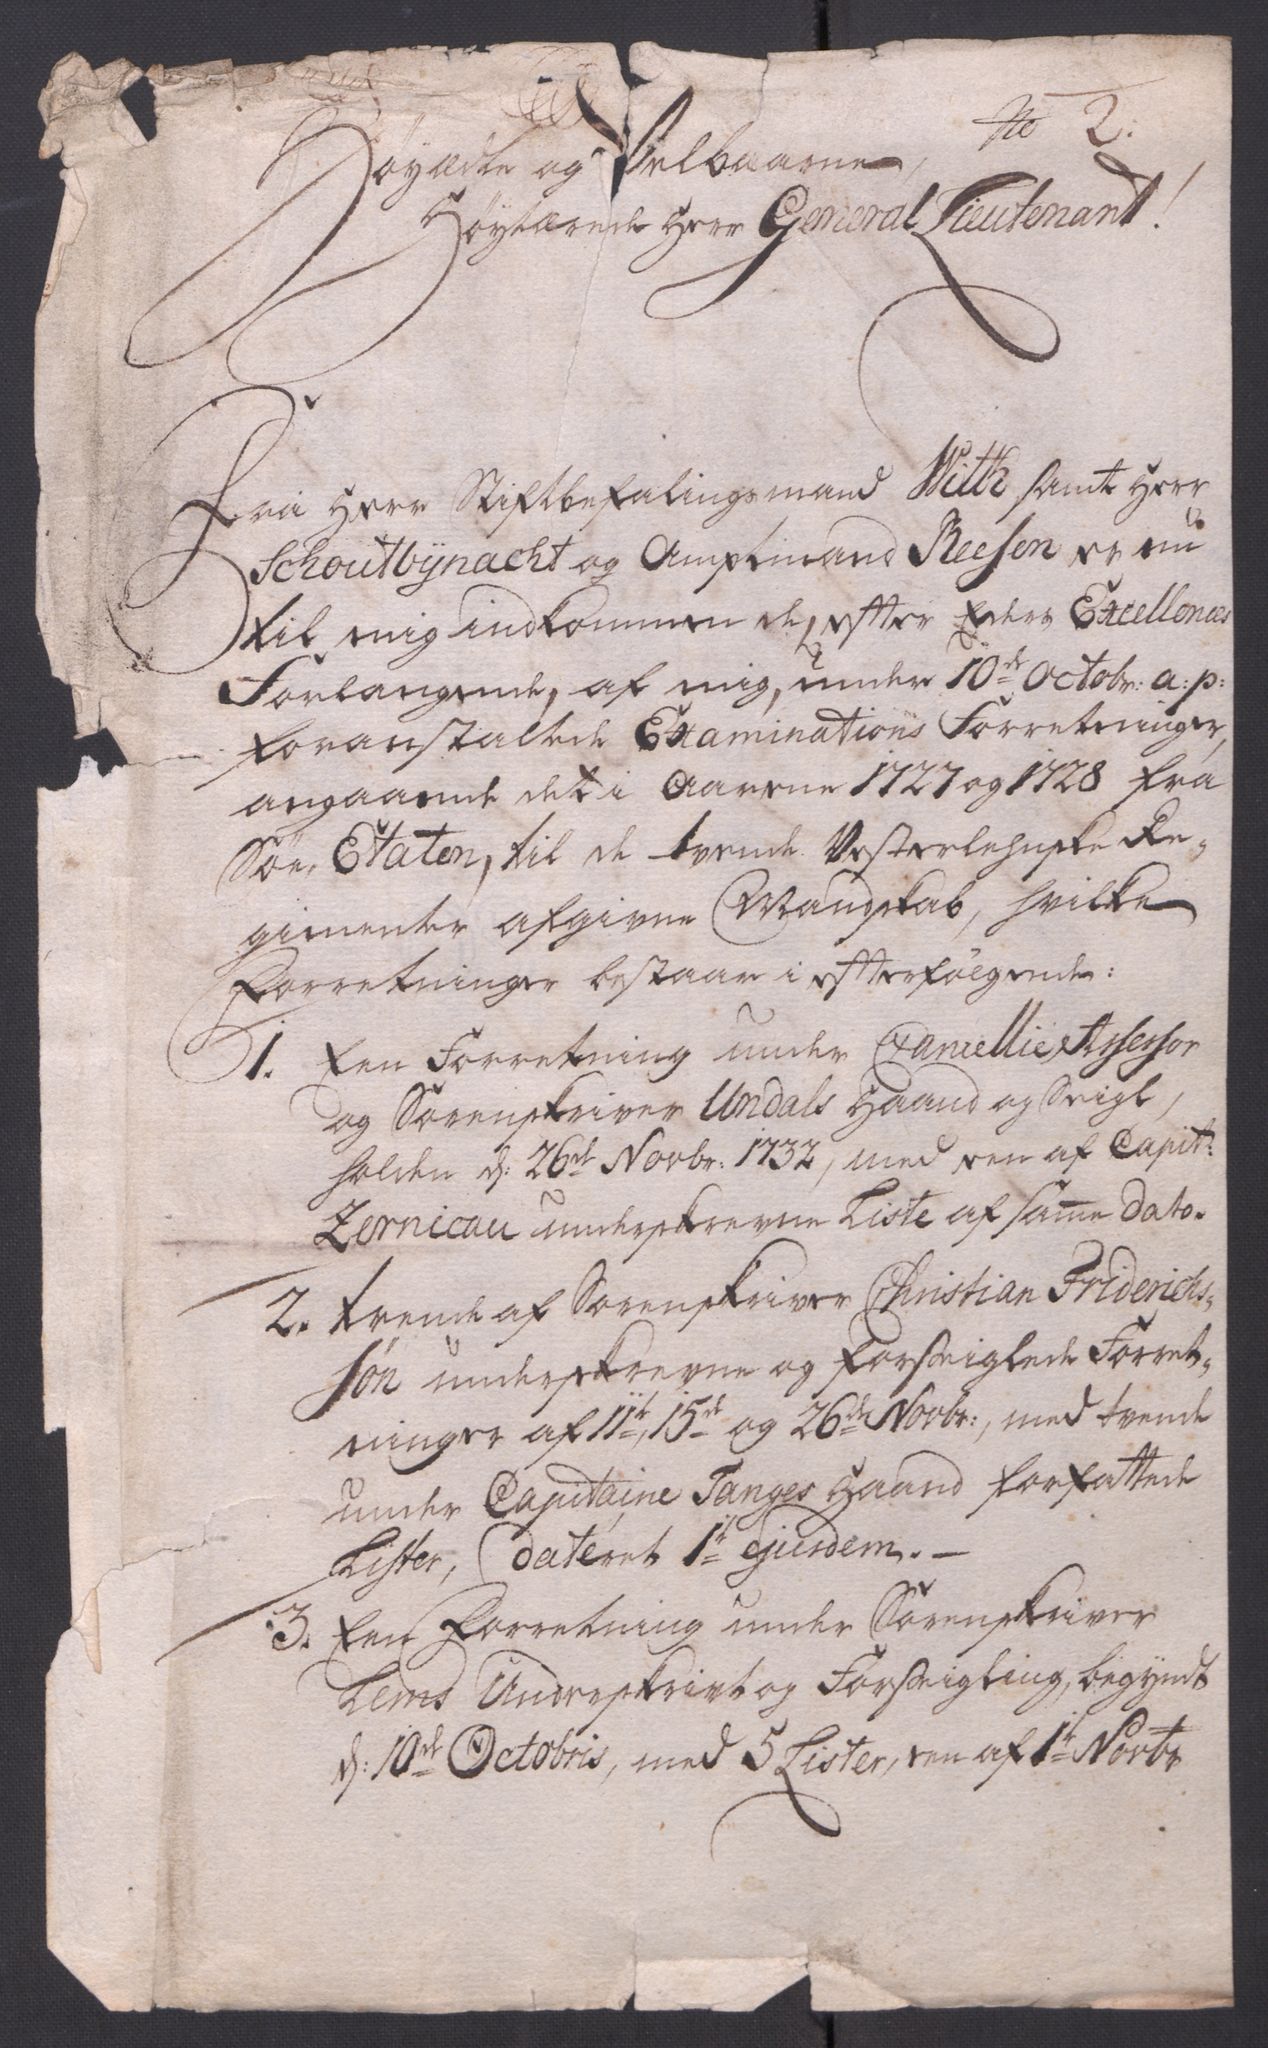 No 2.
Høyædle og Velbaarne,
Høytærede Herr General Lieutenant!
Fra Herr Stiftbefalingsmand Witth samt Herr
Schoutbÿnacht og Amptmand Reesen er nu
til mig indkommen de, efter Eders Excellences
Forlangende, af mig, under 10de Octobr: a: p:
foranstaltede Examinations Forretninger,
angaaende det i Aarene 1727 og 1728 fra
Søe, Etaten, til de tvende Vesterlehnske Re-
gimenter afgivne Mandskab, hvilke
Forretninger bestaar i efterfølgende:
1. Een Forretning under Cancellie Assessor
og Sorenskriver Undals Haand og Seigl,
holden d: 26de Novbr: 1732, med een af Capit:
Zernicau underskrevne Liste af samme dato.
2. trende af Sorenskriver Christian Friderichs-
søn underskrevne og forseiglede Forret-
ninger af 11te, 15de og 26de Novbr:, med tvende
under Capitaine Tanges Haand forfattede
Lister, dateret 1te ejusdem. –
3. Een Forretning under Sorenskriver
Lems Underskrivt og Forseigling, begyndt
d: 10de Octobris, med 5 Lister, een af 1te Novbr